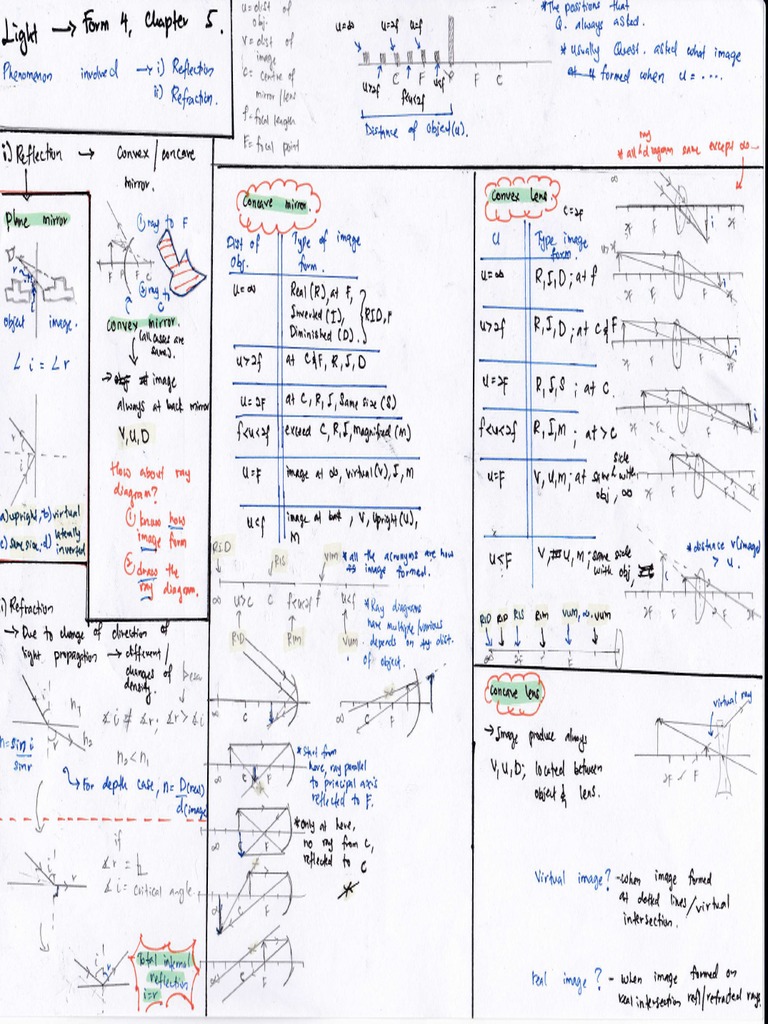 Light → Form 4, Chapter 5.
Phenomenon involved → i) Reflection
ii) Refraction.
u = dist of
obj.
v = dist of
image
C = centre of
mirror/lens
f = focal length
F = focal point
u=∞
u=2f
u=f
u>2f
C
F
f<u<2f
u<f
F
C
Distance of object (u).
*The positions that
Q. always asked.
* usually Quest. asked what image
formed when u = ....
i) Reflection → Convex/concave
mirror.
Plane mirror
object
image.
∠i = ∠r
a) upright, b) virtual
c) same size, d) laterally
inverted
① ray to F
② ray to C
F
F
C
convex mirror.
(all cases are
same).
→ image
always at back mirror
V, U, D
How about ray
diagram?
① know how
image form
② draw the
ray diagram.
Concave mirror.
Dist of
Obj.
Type of image
form.
u=∞
Real (R), at F,
Inverted (I),
Diminished (D).
RID, F
u>2f
at C&F, R, I, D
u=2F
at C, R, I, Same size (S)
f<u<2f
exceed C, R, I, magnified (M)
u=F
image at ∞, virtual (V), I, M
u<f
image at back, V, Upright (U),
M
RID
RIS
VIM
*all the acronyms are how
image formed.
u>C
C
f<u<2f
f
u<f
RID
RIM
VUM
*Ray diagrams
have multiple/various
depends on the dist.
of object.
∞
C
F
∞
C
F
∞
C
F
*Start from
here, ray parallel
to principal axis
reflected to F.
∞
C
F
*Only at here,
no ray from C,
reflected to C
∞
F
∞
C
F
Convex lens
C=2F
ray
* all diagram same except ∞
U
Type image
form.
u=∞
R, I, D; at f
u>2f
R, I, D; at C & F
u=2F
R, I, S; at C.
f<u<2f
R, I, M; at > C
u=F
V, U, M; at same side with
obj, ∞
u<F
V, U, M; same side
with obj,
* distance v(image)
> u.
RID RID RIS RIM VUM, ∞ VUM
∞
2F
F
Concave lens
→ Image produce always
V, U, D; located between
object & lens.
virtual ray
2F
F
Virtual image? - when image formed
at dotted lines/virtual
intersection.
Real image? - when image formed on
real intersection refl/refracted rays.
i) Refraction
→ Due to change of direction of
light propagation → different/
changes of
density.
n₁
n₂
∡i ≠ ∡r; ∡r > ∡i
n₂<n₁
n = sin i
sin r
For depth case, n = D(real)
d(image
if
∡r = ⊾
∡i = critical angle.
Total internal
reflection
i=r